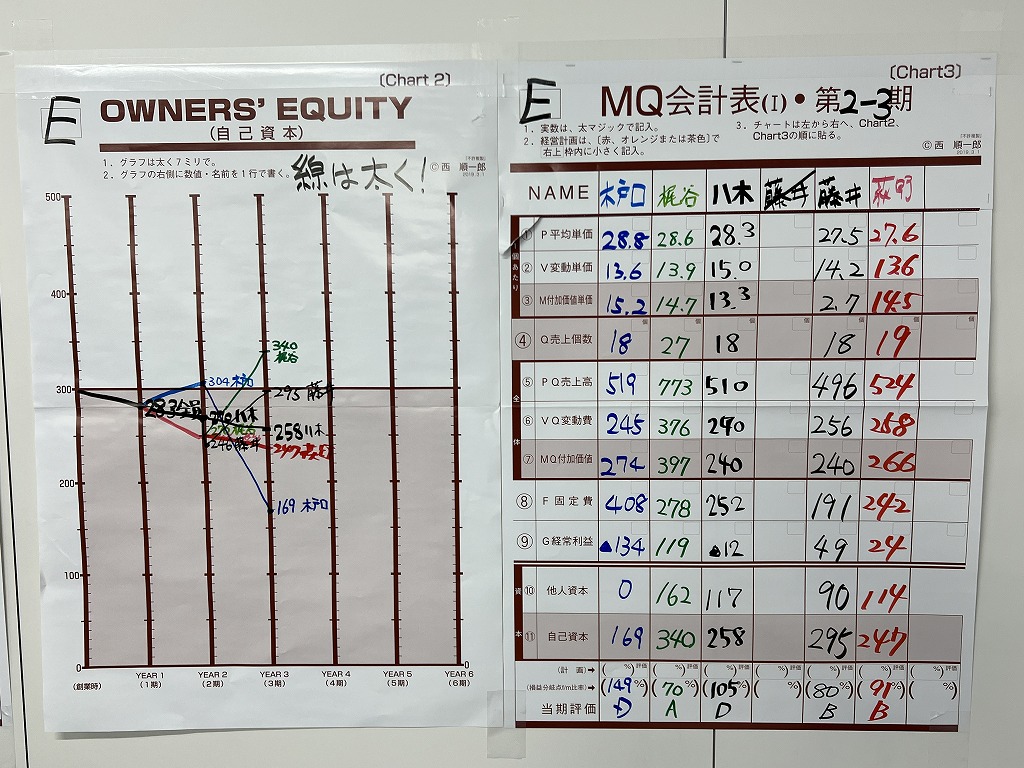 (Chart 2)
E
OWNERS' EQUITY
(自己資本)
1．グラフは太く7ミリで。
2．グラフの右側に数値・名前を1行で書く。
線は太く!
[不許複製]
2019.3.1
© 西 順一郎
500
400
300
200
100
0
0
340
梶谷
304 木戸口
295 藤井
283 全員
258 八木
246 藤井
169 木戸口
(創業時)
YEAR 1
(1期)
YEAR 2
(2期)
YEAR 3
(3期)
YEAR 4
(4期)
YEAR 5
(5期)
YEAR 6
(6期)
(Chart3)
E
MQ会計表(I)・第2-3期
1．実数は、太マジックで記入。
2．経営計画は、〔赤、オレンジまたは茶色〕で
右上枠内に小さく記入。
3．チャートは左から右へ、Chart2、
Chart3の順に貼る。
[不許複製]
2019.3.1
© 西 順一郎
NAME 木戸口 梶谷 八木 藤井 藤井 萩野
個あたり
① P平均単価 28.8 28.6 28.3 27.5 27.6
② V変動単価 13.6 13.9 15.0 14.2 13.6
③ M付加価値単価 15.2 14.7 13.3 2.7 14.5
④ Q売上個数 18 27 18 18 19
全体
⑤ PQ売上高 519 773 510 496 524
⑥ VQ変動費 245 376 270 256 258
⑦ MQ付加価値 274 397 240 240 266
⑧ F固定費 408 278 252 191 242
⑨ G経常利益 ▲134 119 ▲12 49 24
資本
⑩ 他人資本 0 162 117 90 114
⑪ 自己資本 169 340 258 295 247
(計画)➡ ( %)評価 ( %)評価 ( %)評価 ( %)評価 ( %)評価 ( %)評価 ( %)評価
(損益分岐点f/m比率)➡ (149%) (70%) (105%) ( %) (80%) (91%) ( %)
当期評価 D A D B B